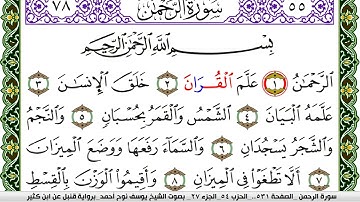 ٥٥ سُورَةُ الرَّحْمَٰن ٧٨
بِسْمِ اللَّهِ الرَّحْمَٰنِ الرَّحِيمِ
الرَّحْمَٰنُ ١ عَلَّمَ الْقُرَانَ ٢ خَلَقَ الْإِنسَانَ ٣
عَلَّمَهُ الْبَيَانَ ٤ الشَّمْسُ وَالْقَمَرُ بِحُسْبَانٍ ٥ وَالنَّجْمُ
وَالشَّجَرُ يَسْجُدَانِ ٦ وَالسَّمَآءَ رَفَعَهَا وَوَضَعَ الْمِيزَانَ
٧ أَلَّا تَطْغَوْا فِي الْمِيزَانِ ٨ وَأَقِيمُوا الْوَزْنَ بِالْقِسْطِ
سورة الرحمن . الصفحة ٥٣١... الحزب ٥٤ . الجزء ٢٧ . بصوت الشيخ يوسف نوح احمد . برواية قنبل عن ابن كثير